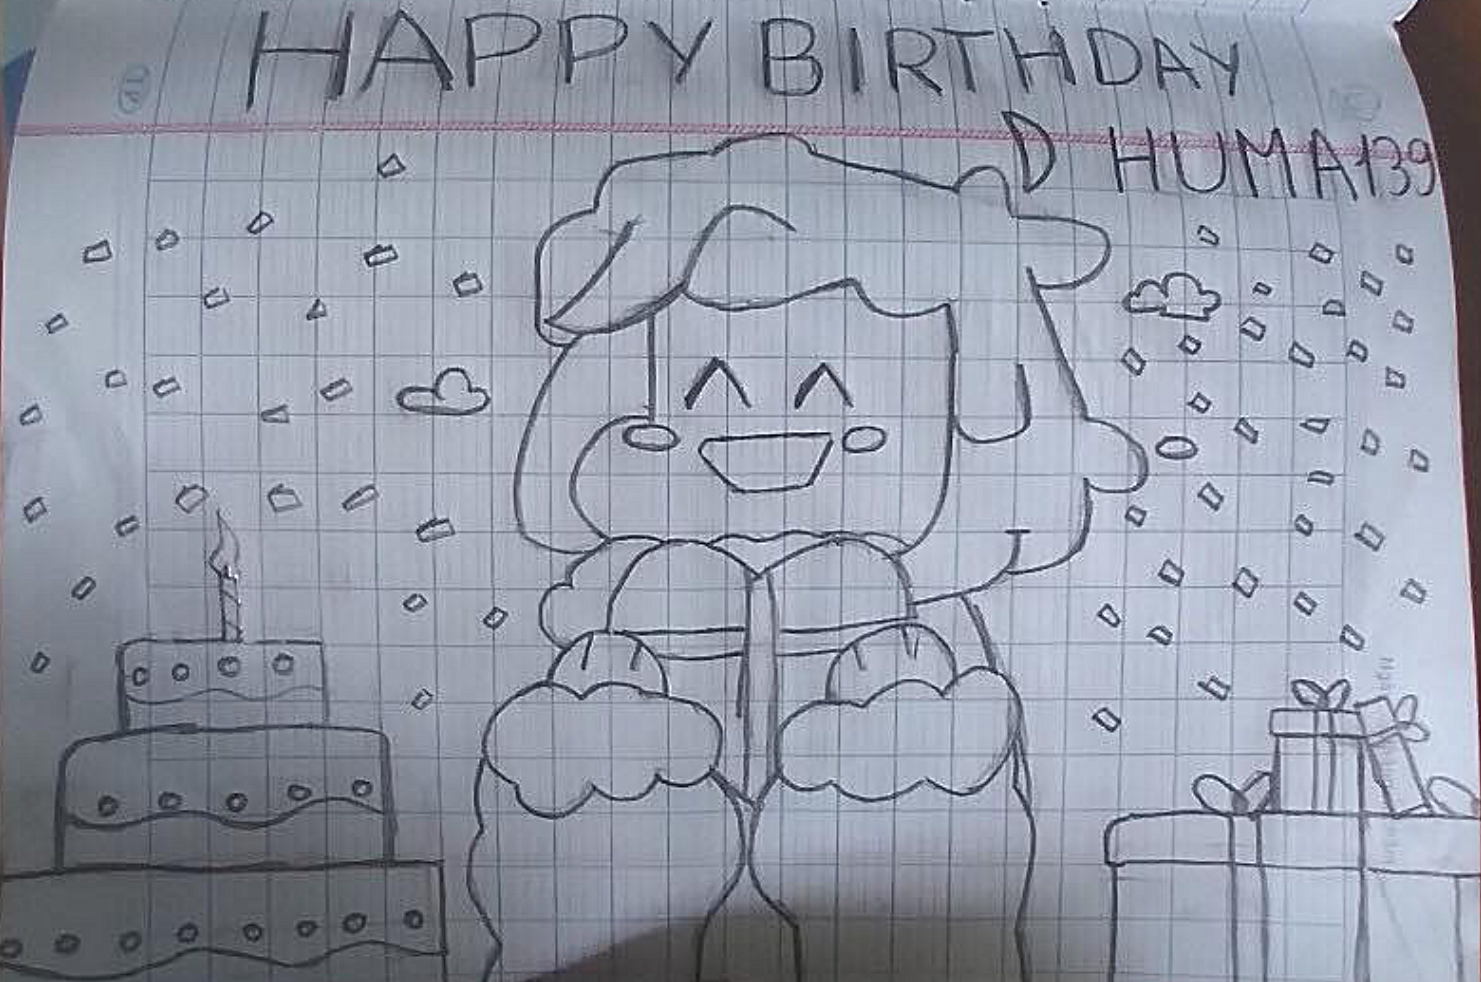 HAPPY BIRTHDAY
D HUMA139